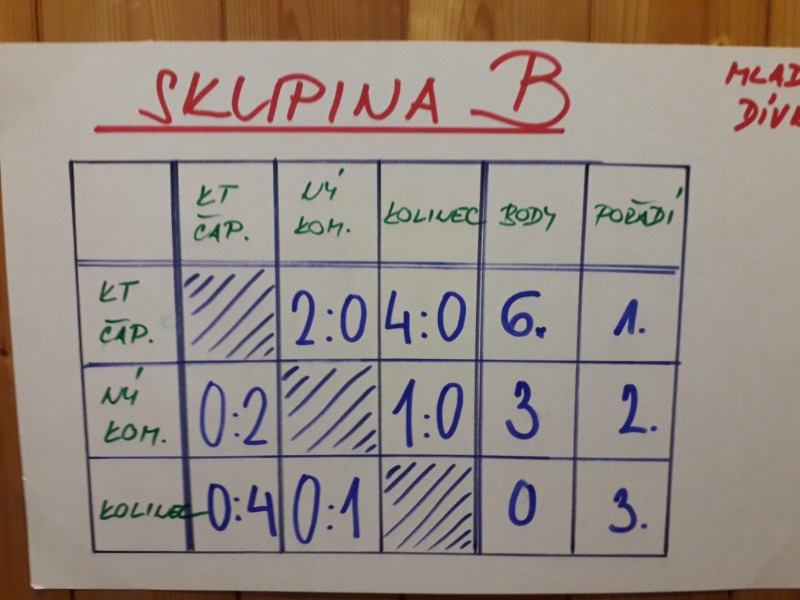 SKUPINA B
MLAD
DÍVK
KT ČAP. NÝ KOM. KOLINEC BODY POŘADÍ
KT ČAP. 2:0 4:0 6. 1.
NÝ KOM. 0:2 1:0 3 2.
KOLINEC 0:4 0:1 0 3.